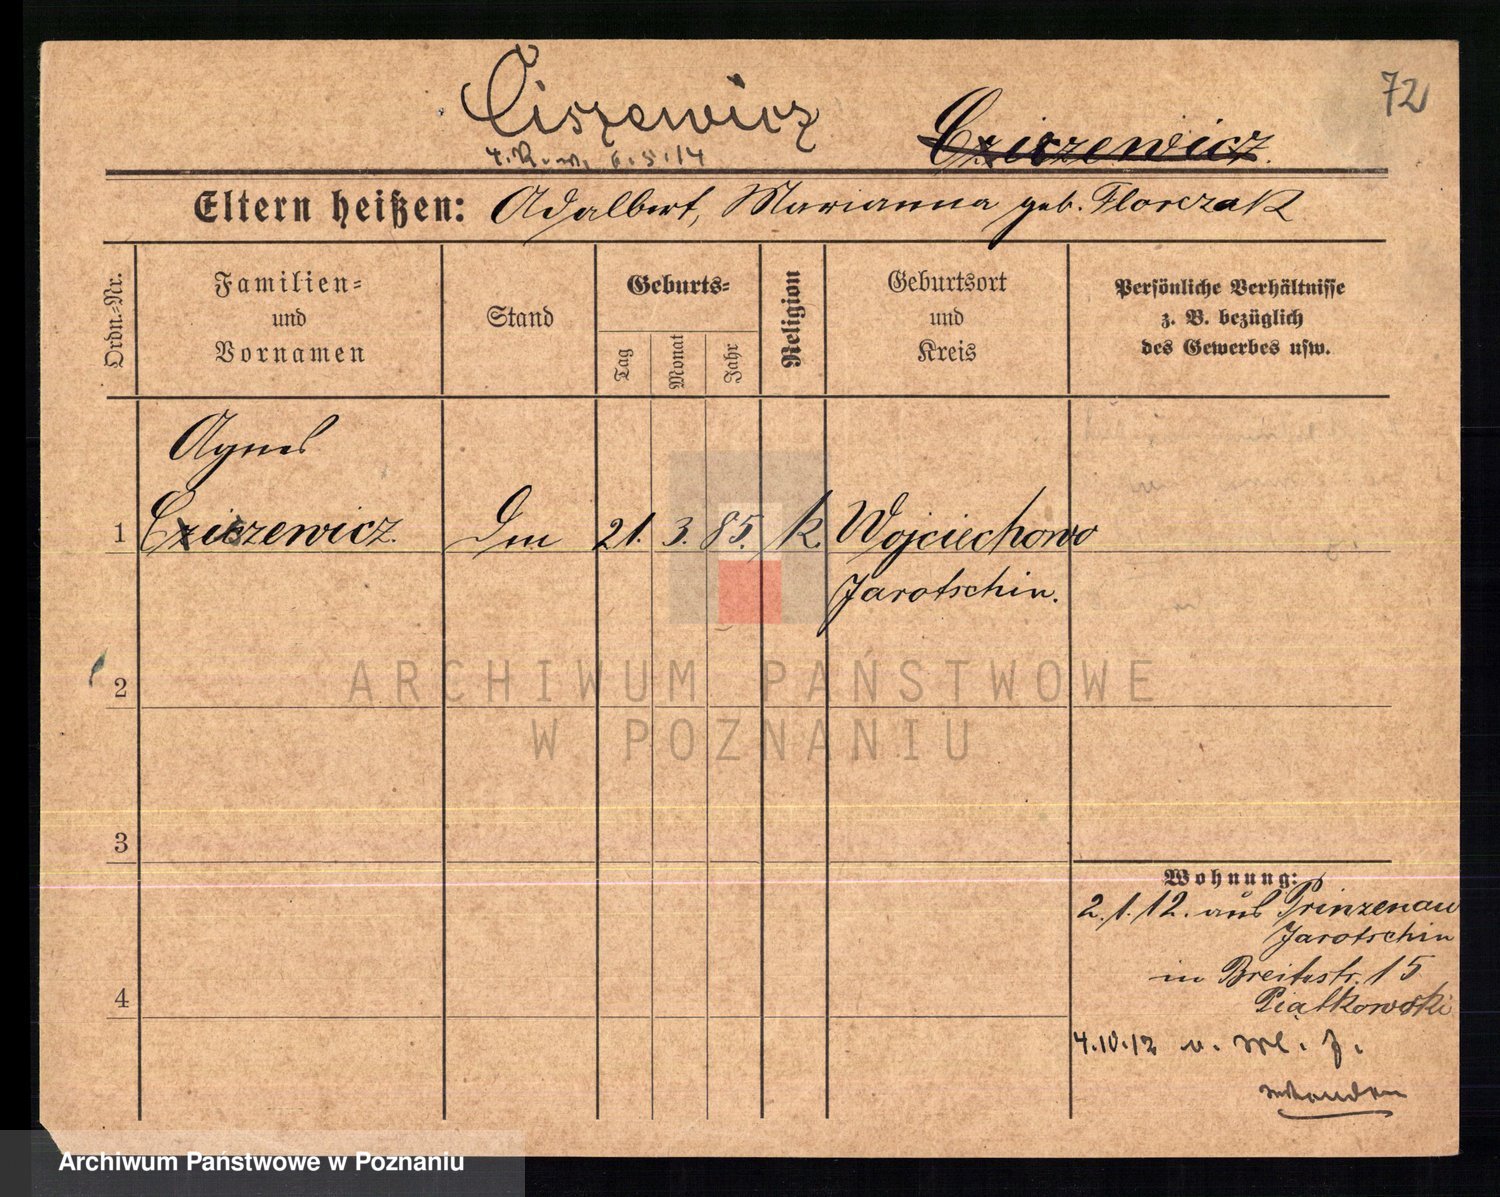 72
Ciszewicz
Cziszewicz.
6.5.14
Eltern heißen: Adalbert, Marianna geb. Florczak
Ordn.-Nr.
Familien-
und
Vornamen
Stand
Geburts-
Tag
Monat
Jahr
Religion
Geburtsort
und
Kreis
Persönliche Verhältnisse
z. B. bezüglich
des Gewerbes usw.
Agnes
1 Cziszewicz. 21. 3. 85. k. Wojciechowo
Jarotschin.
2
ARCHIWUM PAŃSTWOWE
W POZNANIU
3
Wohnung:
2.1.12. aus Prinzenau
Jarotschin
in Breitestr. 15
4
Piątkowski
4.10.12
Archiwum Państwowe w Poznaniu